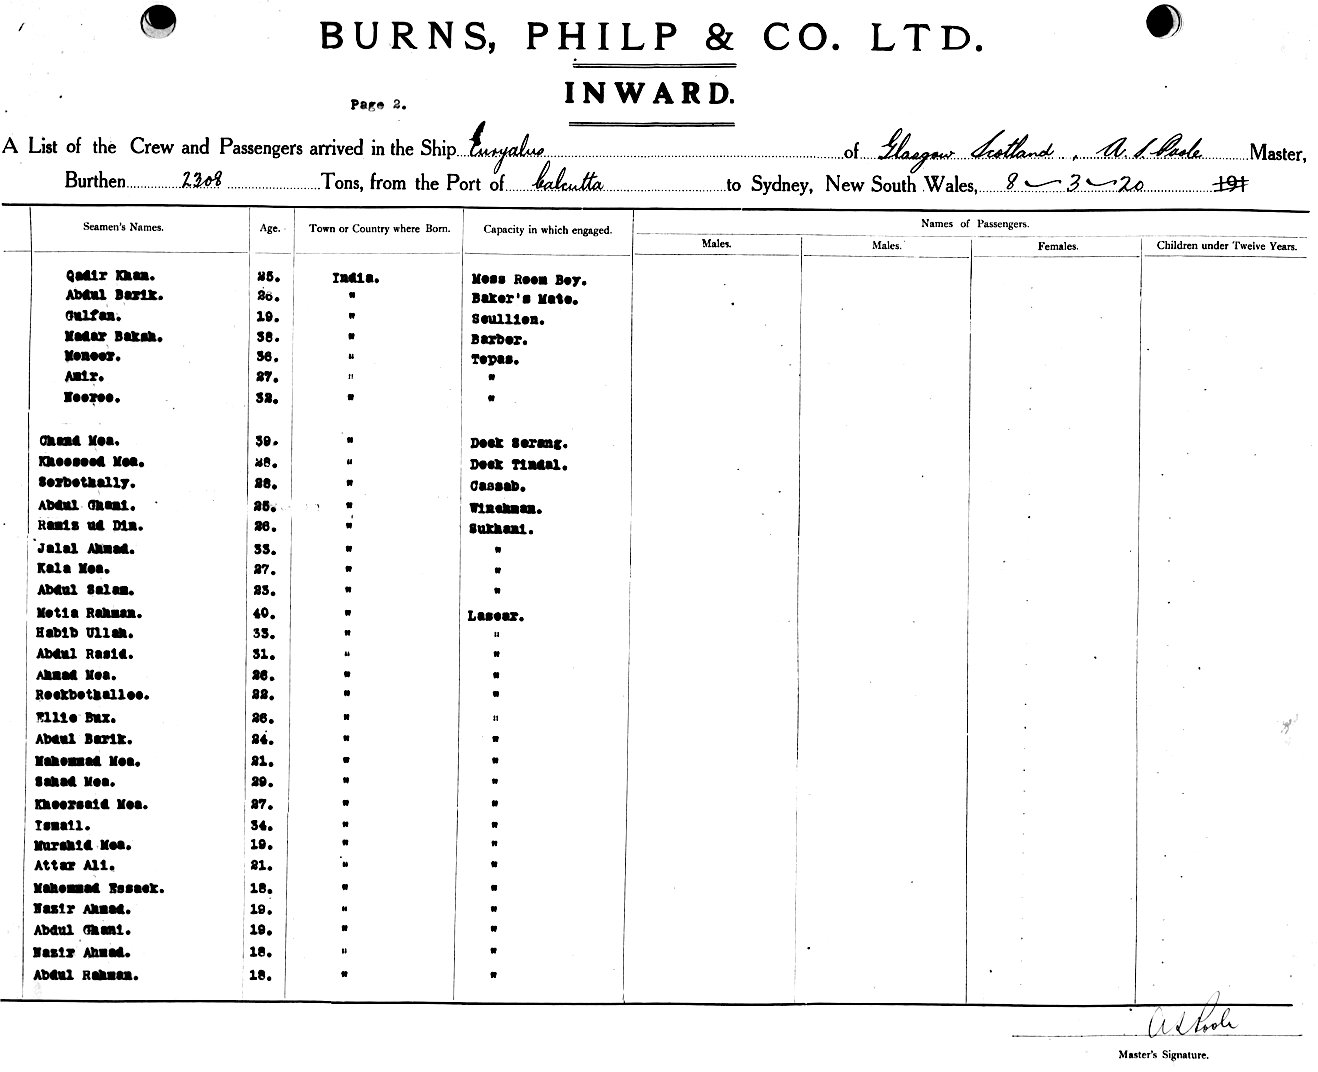 BURNS, PHILP & CO. LTD.
INWARD.
Page 2.
A List of the Crew and Passengers arrived in the Ship Euryalus of Glasgow Scotland, A. S. Poole Master,
Burthen 2308 Tons, from the Port of Calcutta to Sydney, New South Wales, 8-3-20 191
Seamen's Names. Age. Town or Country where Born. Capacity in which engaged. Names of Passengers.
Males. Males. Females. Children under Twelve Years.
Qadir Khan. 25. India. Mess Room Boy.
Abdul Barik. 26. " Baker's Mate.
Gulfan. 19. " Scullion.
Madar Baksh. 38. " Barber.
Moneer. 36. " Topas.
Amir. 27. " "
Heeroo. 32. " "
Chand Mea. 39. " Deck Serang.
Kheoseed Mea. 28. " Deck Tindal.
Sorbethally. 28. " Cassab.
Abdul Ghani. 25. " Winchman.
Ramis ud Din. 26. " Sukhani.
Jalal Ahmad. 33. " "
Kala Mea. 27. " "
Abdul Salam. 23. " "
Motia Rahman. 40. " Lascar.
Habib Ullah. 33. " "
Abdul Rasid. 31. " "
Ahmad Mea. 26. " "
Rockbethallee. 22. " "
Ellie Bux. 26. " "
Abdul Barik. 24. " "
Mahommad Mea. 21. " "
Sahad Mea. 29. " "
Kheorsaid Mea. 27. " "
Ismail. 34. " "
Murshid Mea. 19. " "
Attar Ali. 21. " "
Mahommad Essack. 18. " "
Nasir Ahmad. 19. " "
Abdul Ghani. 19. " "
Nasir Ahmad. 18. " "
Abdul Rahman. 18. " "
A S Poole
Master's Signature.